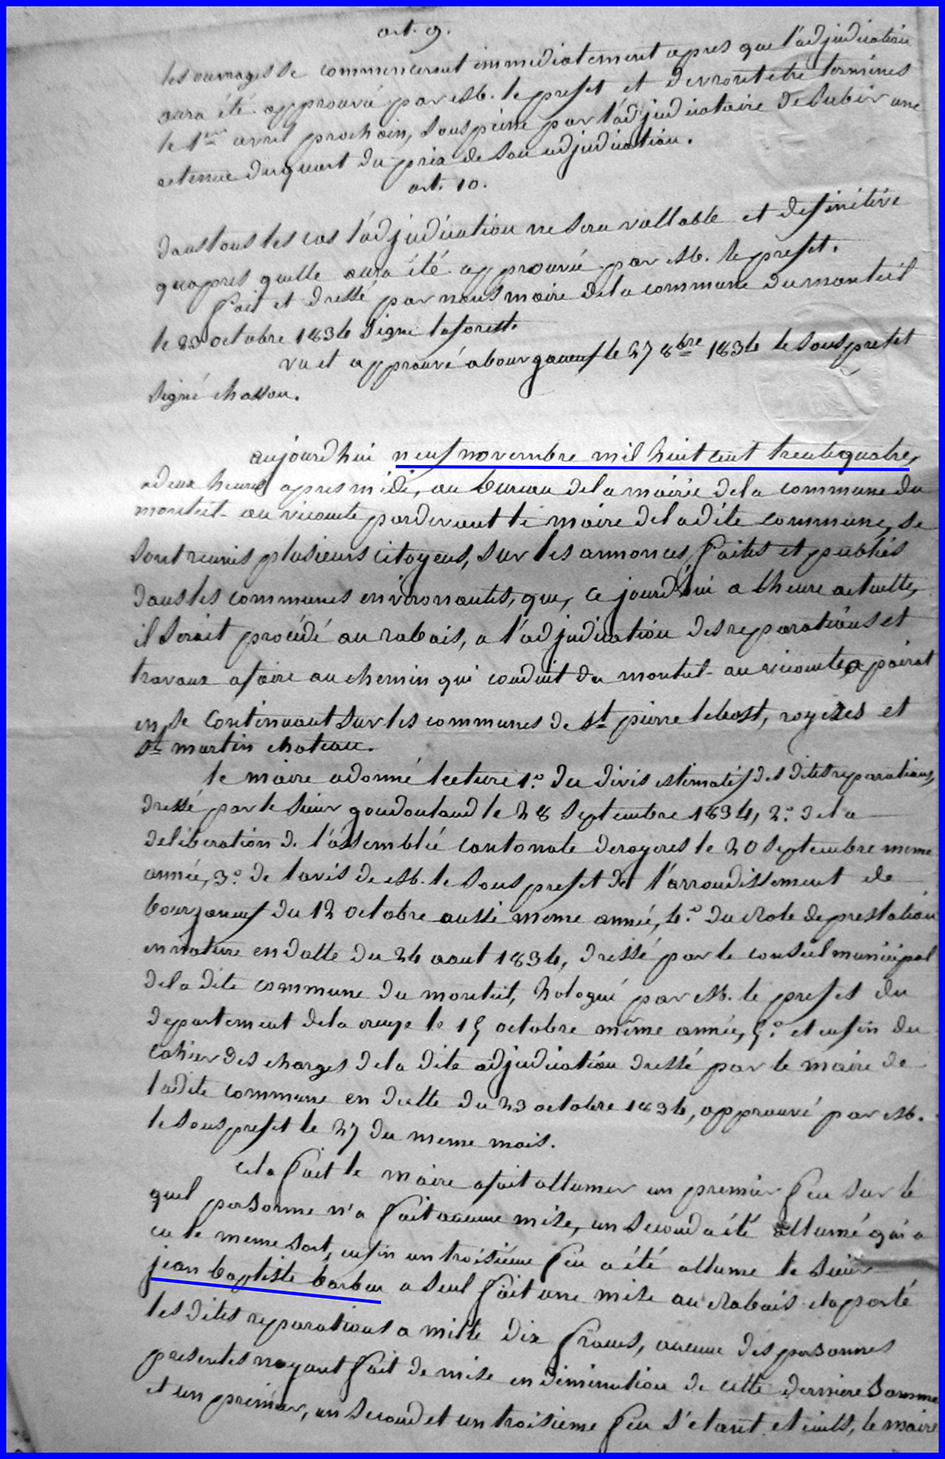 art. 9.
les ouvrages se commenceront immediatement apres que l'adjudication
aura été approuvé par M. le prefet et devront etre terminés
le 1er avril prochain, sous peine par l'adjudicataire de subir une
retenue du quart du prix de son adjudication.
art. 10.
dans tous les cas l'adjudication ne sera vallable et definitive
qu'apres quelle aura été approuvée par M. le prefet.
fait et dressé par nous maire de la commune du monteil
le 23 octobre 1834 signé laforest.
vu et approuvé a bourganeuf le 27 8bre 1834 le sous prefet
signé chassou.
aujourd'hui neuf novembre mil huit cent trente quatre,
a deux heures apres midi, au bureau de la mairie de la commune du
monteil-au vicomte pardevant le maire de ladite commune, se
sont reunis plusieurs citoyens, sur les annonces faites et publiés
dans les communes environnantes, que, ce jourd'hui a lheure actuelle,
il serait procédé au rabais, a l'adjudication des reparations et
travaux afaire au chemin qui conduit du monteil-au vicomte a poirat
en se continuant sur les communes de St pierre lebost, royeres et
St martin chateau.
le maire adonné lecture 1.o du divis estimatif des dites reparations,
dressé par le sieur goudoulaud le 28 septembre 1834, 2.o de la
deliberation de l'assemblée cantonale deroyeres le 20 septembre meme
année, 3.o de l'avis de M. le sous prefet de l'arrondissement de
bourganeuf du 12 octobre aussi meme année, 4.o du Role de prestation
en nature en datte du 24 aout 1834, dressé par le conseil municipal
de la dite commune du monteil, hologué par M. le prefet du
departement de la creuse le 15 octobre même année, 5.o et enfin du
cahier des charges de la dite adjudication dressé par le maire de
ladite commune en datte du 23 octobre 1834, approuvé par M.
le sous prefet le 27 du meme mois.
cela fait le maire afait allumer un premier feu sur le
quel personne n'a fait aucune mise, un second a été allumé qui a
eu le meme sort, enfin un troisième feu a été allume le sieur
jean baptiste barbeu a seul fait une mise au Rabais et a porté
les dites reparations a mille dix francs, aucune des personnes
presentes nayant fait de mise en diminution de cette derniere somme
et un premier, un second et un troisieme feu s'etant eteints, le maire